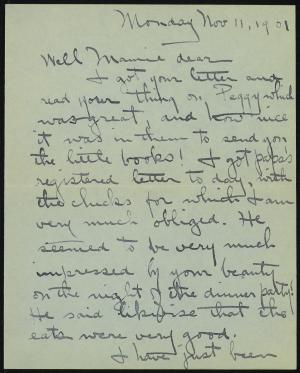 Monday Nov 11, 1901
Well Mamie dear
I got your letter and
read your thing on Peggy which
was great, and how nice
it was in them to send you
the little books! I got papa's
registered letter to day, with
the checks for which I am
very much obliged. He
seemed to be very much
impressed by your beauty
on the night of the dinner party!
He said likewise that the
eats were very good.
I have just been